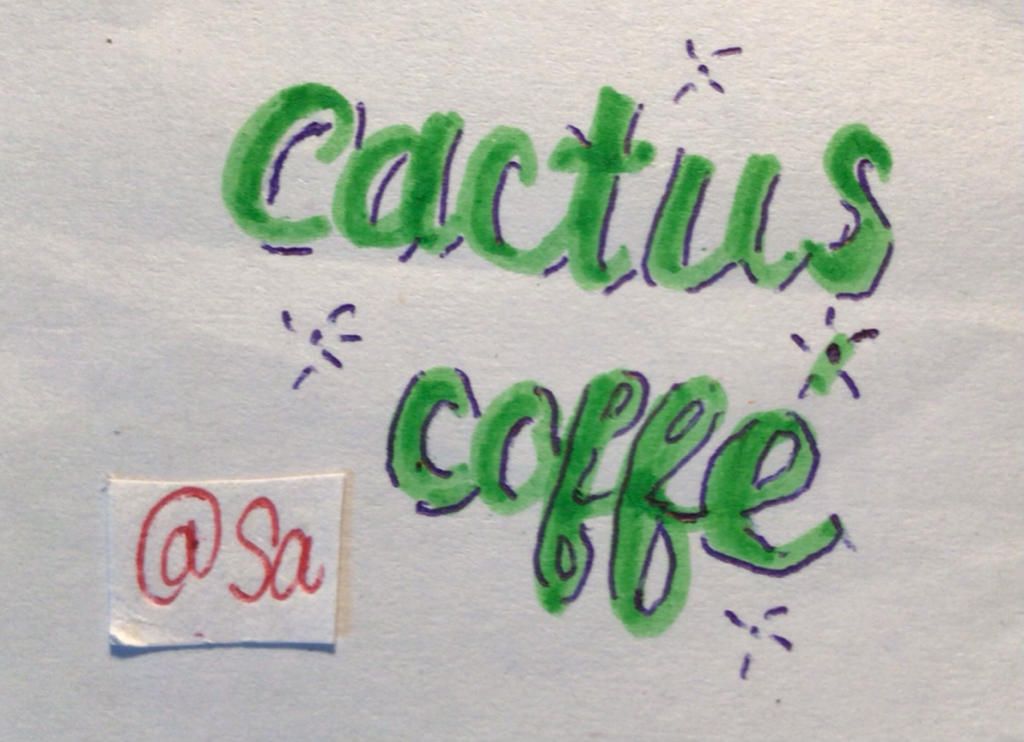 cactus
coffe
@Sa